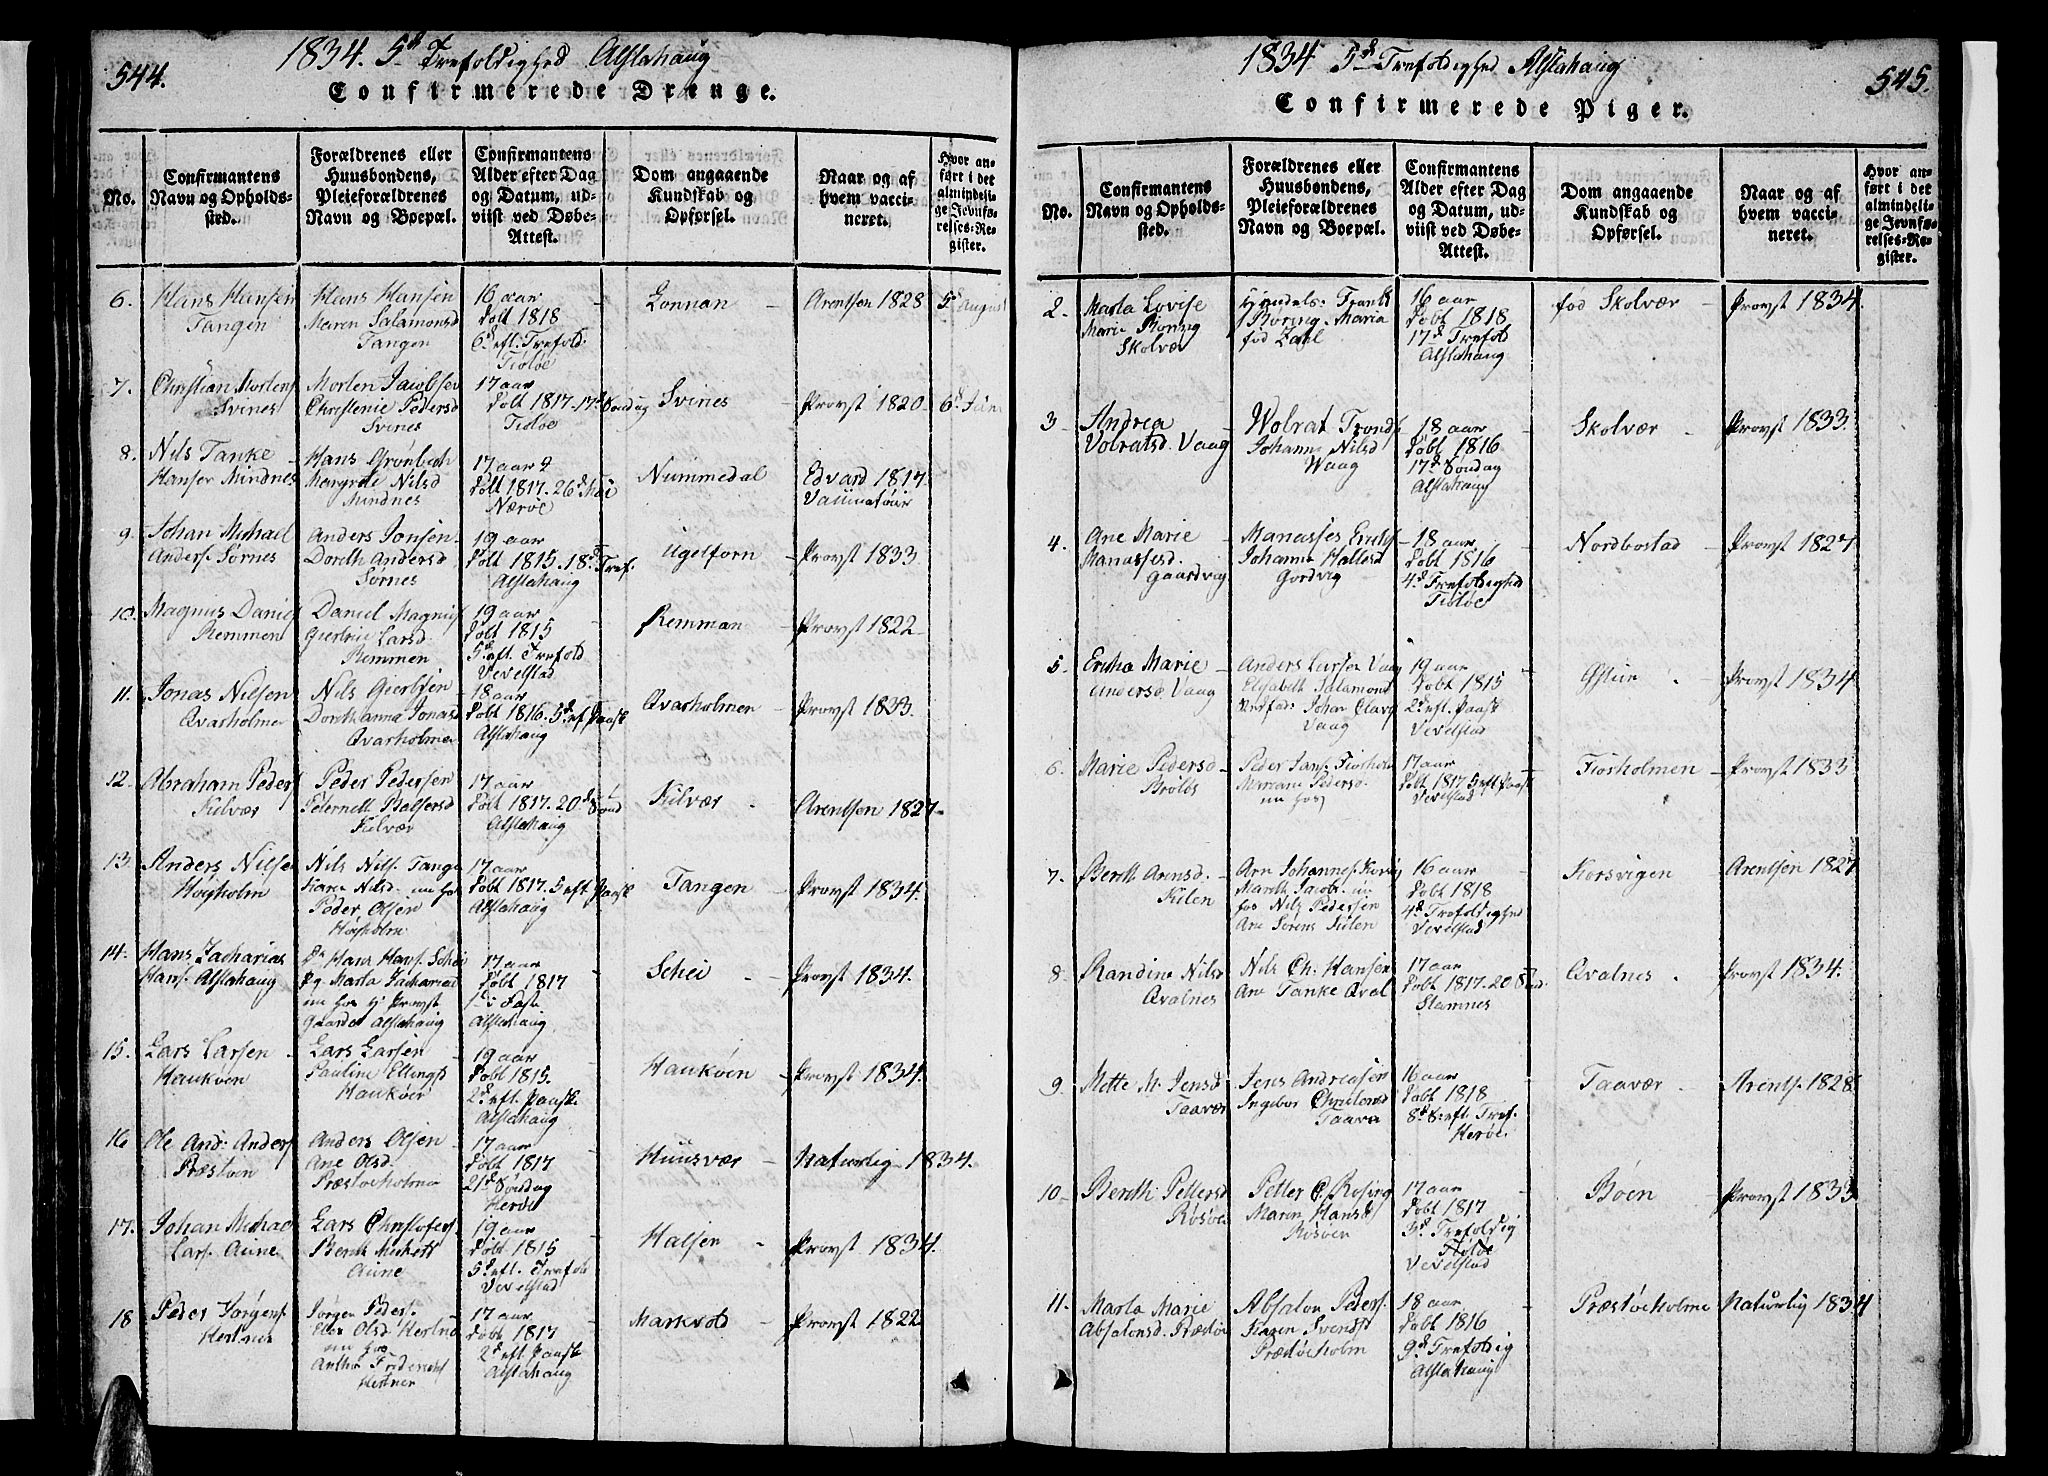 544.
1834. 5d Trefoldighed Alstahaug
Confirmerede Drenge.
No.
Confirmantens
Navn og Opholds-
sted.
Forældrenes eller
Huusbondens,
Pleieforældrenes
Navn og Boepæl.
Confirmantens
Alder efter Dag
og Datum, ud-
viist ved Døbe-
Attest.
Dom angaaende
Kundskab og
Opførsel.
Naar og af
hvem vacci-
neret.
Hvor an-
ført i det
almindeli-
ge Jevnfø-
relses-Re-
gister.
6. Hans Hansen
Tangen
Hans Hansen
Maren Salamonsd
Tangen
16 aar
døbt 1818
6d eft. Trefold.
Tiøtøe
Lonnan
Arentsen 1828
5d August
7. Christian Mortens
Svines
Morten Jacobsen
Christenie Pedersd
Svines
17 aar
døbt 1817-17d Søndag
Tiøtøe
Svines
Provst 1820
6d Juni
8. Nils Tanke
Hansen Mindnes
Hans Grønbech
Margrete Nilsd
Mindnes
17 aar
døbt 1817. 26d Mai
Nærøe
Nummedal
Edvard 1817
Vaccinatøur
9. Johan Michael
Anders. Sørnes
Anders Jonsen
Doreth Andersd
Sørnes
19 aar
døbt 1815. 18d Tref.
Alstahaug
Ugelforn
Provst 1833
10. Magnus Daniels
Remmen
Daniel Magnus
Giertrue Larsd
Remmen
19 aar
døbt 1815
5d eft. Trefold
Vevelstad
Remman
Provst 1822
11. Jonas Nilsen
Qvarholmen
Nils Giertsen
Doreth anna Jonasd
Qvarholmen
18 aar
døbt 1816. 5d eft Paask
Alstahaug
Qvarholmen
Provst 1833.
12. Abraham Peders
Kilvær
Peder Pedersen
Peternell Baltsersd
Kilvær
17 aar
døbt 1817. 20d Sønd
Alstahaug
Kilvær
Arentsen 1827
13. Anders Nilsen
Høysholm
Nils Nils. Tangen
Karen Nilsd. nu hos
Peder Olsen
Høyholm
17 aar
døbt 1817. 5 eft Paask
Alstahaug
Tangen
Provst 1834.
14. Hans Zacharias
Hans. Alstahaug
Hans Hans. Schei
Pg Marta Zachariasd
nu hos hr Provst
Gaarder Alstahaug
17 aar
døbt 1817
1d i Faste
Alstahaug
Schei
Provst 1834.
15. Lars Larsen
Haukøen
Lars Larsen
Pauline Ellingsd
Haukøen
19 aar
døbt 1815.
2d eft. Paask.
Alstahaug
Haukøen
Provst 1834.
16 Ole And: Anders
Præstøen
Anders Olsen
Ane Olsd.
Præstøeholmen
17 aar
døbt 1817
21d Søndag
Herøe
Huusvær
Naturlig 1834.
17. Johan Michael
Lars. Aune
Lars Christofers
Aune
19 aar
døbt 1815
5d eft. Trefold
Vevelstad
Halsen
Provst 1834.
18 Peder Jørgens
Hestnes
Jørgen Peders.
Elen Olsd Hestnes
nu hos
Hestnes
17 aar
døbt 1817
2d eft Paask
Alstahaug
Markvold
Provst 1822
545.
1834 5d Trefoldighed Alstahaug
Confirmerede Piger.
No.
Confirmantens
Navn og Opholds-
sted.
Forældrenes eller
Huusbondens,
Pleieforældrenes
Navn og Boepæl.
Confirmantens
Alder efter Dag
og Datum, ud-
viist ved Døbe-
Attest.
Dom angaaende
Kundskab og
Opførsel.
Naar og af
hvem vacci-
neret.
Hvor an-
ført i det
almindeli-
ge Jevnfø-
relses-Re-
gister.
2. Marta Lovise
Marie Boring
Skolvær
Hendels: Frants
Børing. Maria
fød Zahl
16 aar
døbt 1818
17d Trefold
Alstahaug
fød Skolvær
Provst 1834.
3 Andrea
Volratsd. Vaag
Wolrat Tronds
Johanna Nilsd
Waag
18 aar
døbt 1816
17d Søndag
Alstahaug
Skolvær
Provst 1833.
4. Ane Marie
Manassesd.
Gaardvig
Manasses
Johanna Hallesd
Gordvig
18 aar
døbt 1816
4d Trefoldighed
Tiøtøe
Nordbostad
Provst 1827
5. Ericha Marie
Andersd Vaag
Anders Larsen Vaag
Elisabeth Salamonsd
Vaag
19 aar
døbt 1815
2d eft. Paask
Vevelstad
Provst 1834.
6. Marie Pedersd
Brøløs
Peder Jans. Fiosholm
Mariane Pedersd.
nu hos
17 aar
døbt 1817 5 eft Paask
Vevelstad
Fiosholmen
Provst 1833
7. Bereth Arnsd.
Kilen
Arn Johannes. Korsv
Mareth Jacobs. nu
hos Nils Pedersen
Ane Sørens Kilen
16 aar
døbt 1818
4d Trefoldighed
Vevelstad
Korsvigen
Arentsen 1827
8 Randine Nilsd
Qvalnes
Nils Ch. Hansen
Ane Tanke Qval
17 aar
døbt 1817. 20 Sønd.
Stamnes
Qvalnes
Provst 1834.
9 Mette M. Jensd
Taavær
Jens Andreasen
Ingebor Christensd
Taavær
16 aar
døbt 1818
8d S. eft. Tref.
Herøe
Taavær
Arents. 1828
10 Bereth Pettersd
Røsøe
Petter C. Rosing
Maren Hansd
Røsøen
17 aar
døbt 1817
3d Trefoldig
Tiøtøe
Vevelstad
Bøen
Provst 1833
11. Marta Marie
Absalonsd. Præstøe
Absalon Peders.
Karen Svendsd
Præstøeholm
18 aar
døbt 1816
9d Trefoldig
Alstahaug
Præstøeholme
Naturlig 1834